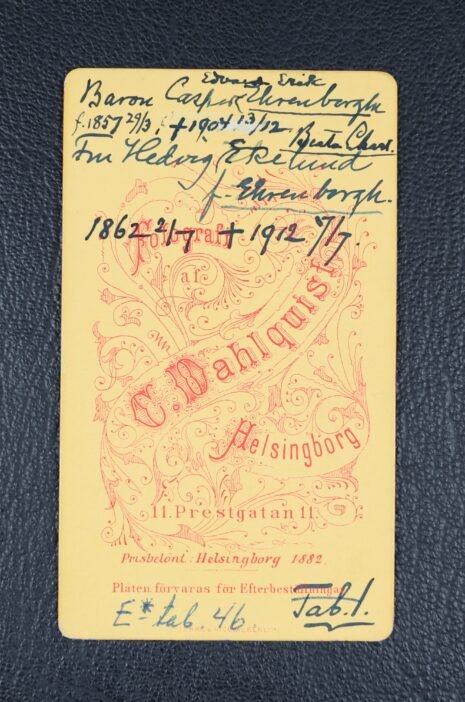 Edvard Erik
Baron Casper Ehrenborgh
f. 1857 29/3, † 1904 13/12 Beata Charl.
Fru Hedvig Ekelund
f. Ehrenborgh.
1862 2/7 † 1912 4/7.
Fotografi
af
C. Dahlquist
Helsingborg
11. Prestgatan 11.
Prisbelönt: Helsingborg 1882
Plåten förvaras för Efterbeställningar
E* tab. 46. Tab. 1.